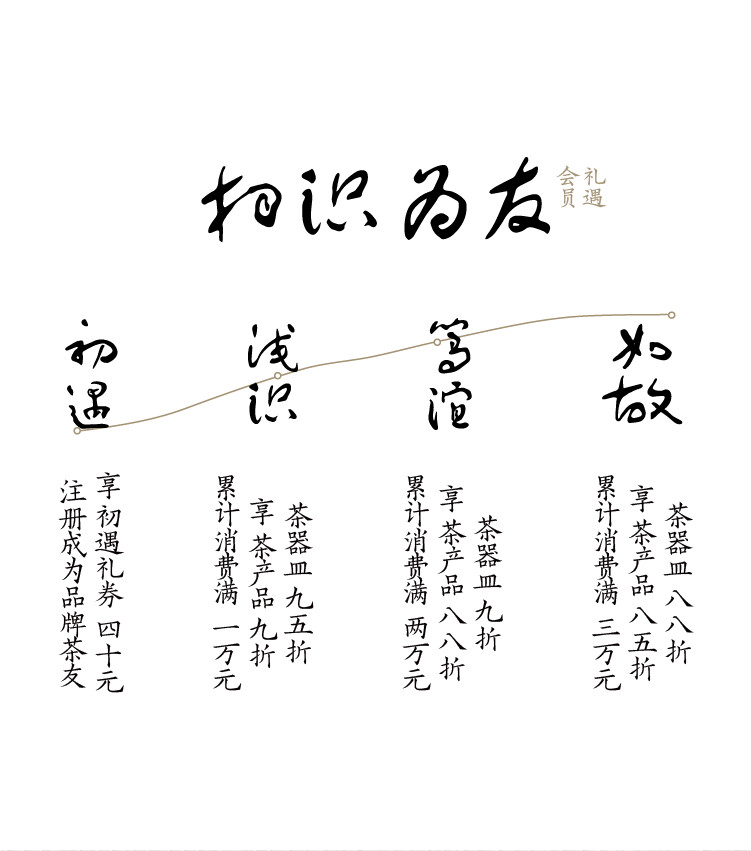 相识为友
会员
礼遇
初遇
浅识
笃谊
如故
注册成为品牌茶友
享初遇礼券 四十元
累计消费满 一万元
享 茶产品 九折
茶器皿 九五折
累计消费满 两万元
享 茶产品 八八折
茶器皿 九折
累计消费满 三万元
享 茶产品 八五折
茶器皿 八八折